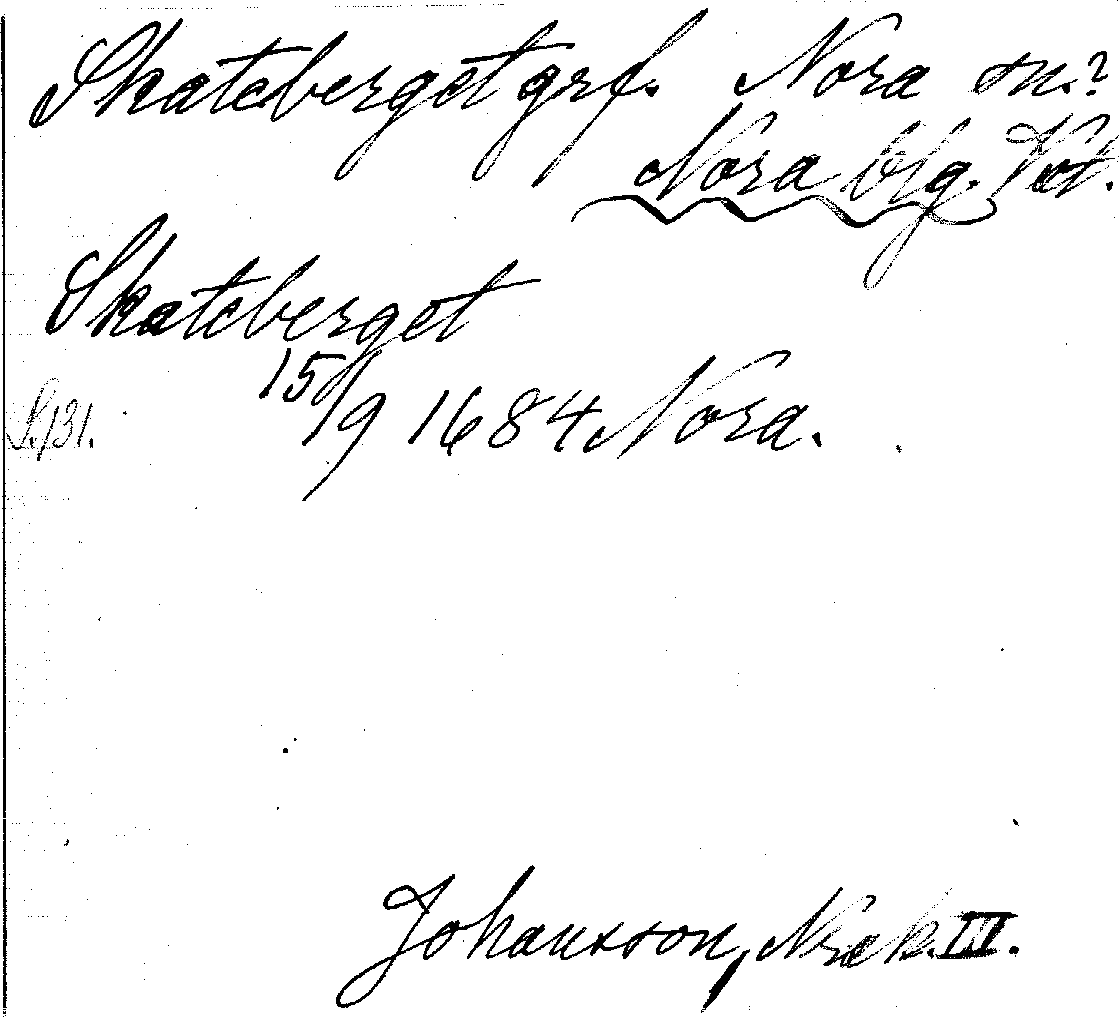 Skateberget grf. Nora sn.?
Nora blg. Vst.
Skateberget
15/9 1684 Nora.
S. 131.
Johansson, Norak. III.